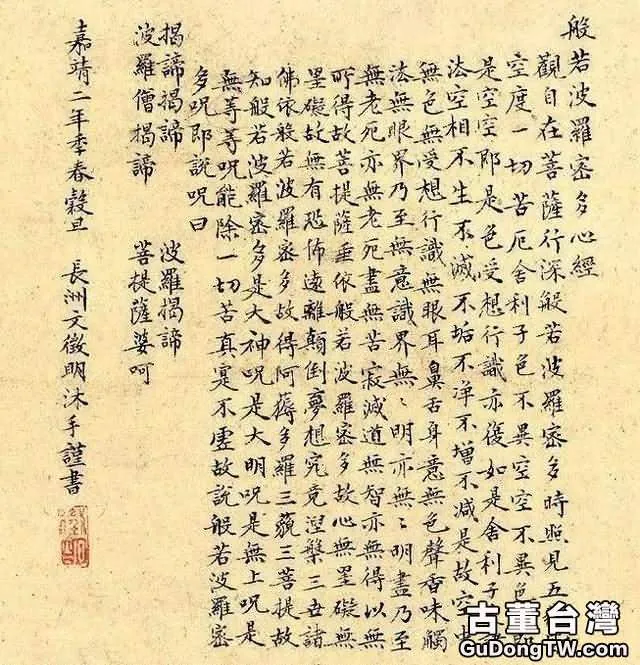 般若波羅密多心經
觀自在菩薩行深般若波羅密多時照見五
空度一切苦厄舍利子色不異空空不異色
是空空即是色受想行識亦復如是舍利子
法空相不生不滅不垢不淨不增不減是故空中
無色無受想行識無眼耳鼻舌身意無色聲香味觸
法無眼界乃至無意識界無〻明亦無〻明盡乃至
無老死亦無老死盡無苦寂滅道無智亦無得以無
所得故菩提薩埵依般若波羅密多故心無罣礙無
罣礙故無有恐怖遠離顛倒夢想究竟涅槃三世諸
佛依般若波羅密多故得阿耨多羅三藐三菩提故
知般若波羅密多是大神呪是大明呪是無上呪是
無等等呪能除一切苦真寔不虛故說般若波羅密
多呪即說呪曰
揭諦揭諦 波羅揭諦
波羅僧揭諦 菩提薩婆呵
嘉靖二年季春穀旦 長洲文徵明沐手謹書
古董台灣
GuDongTW.com